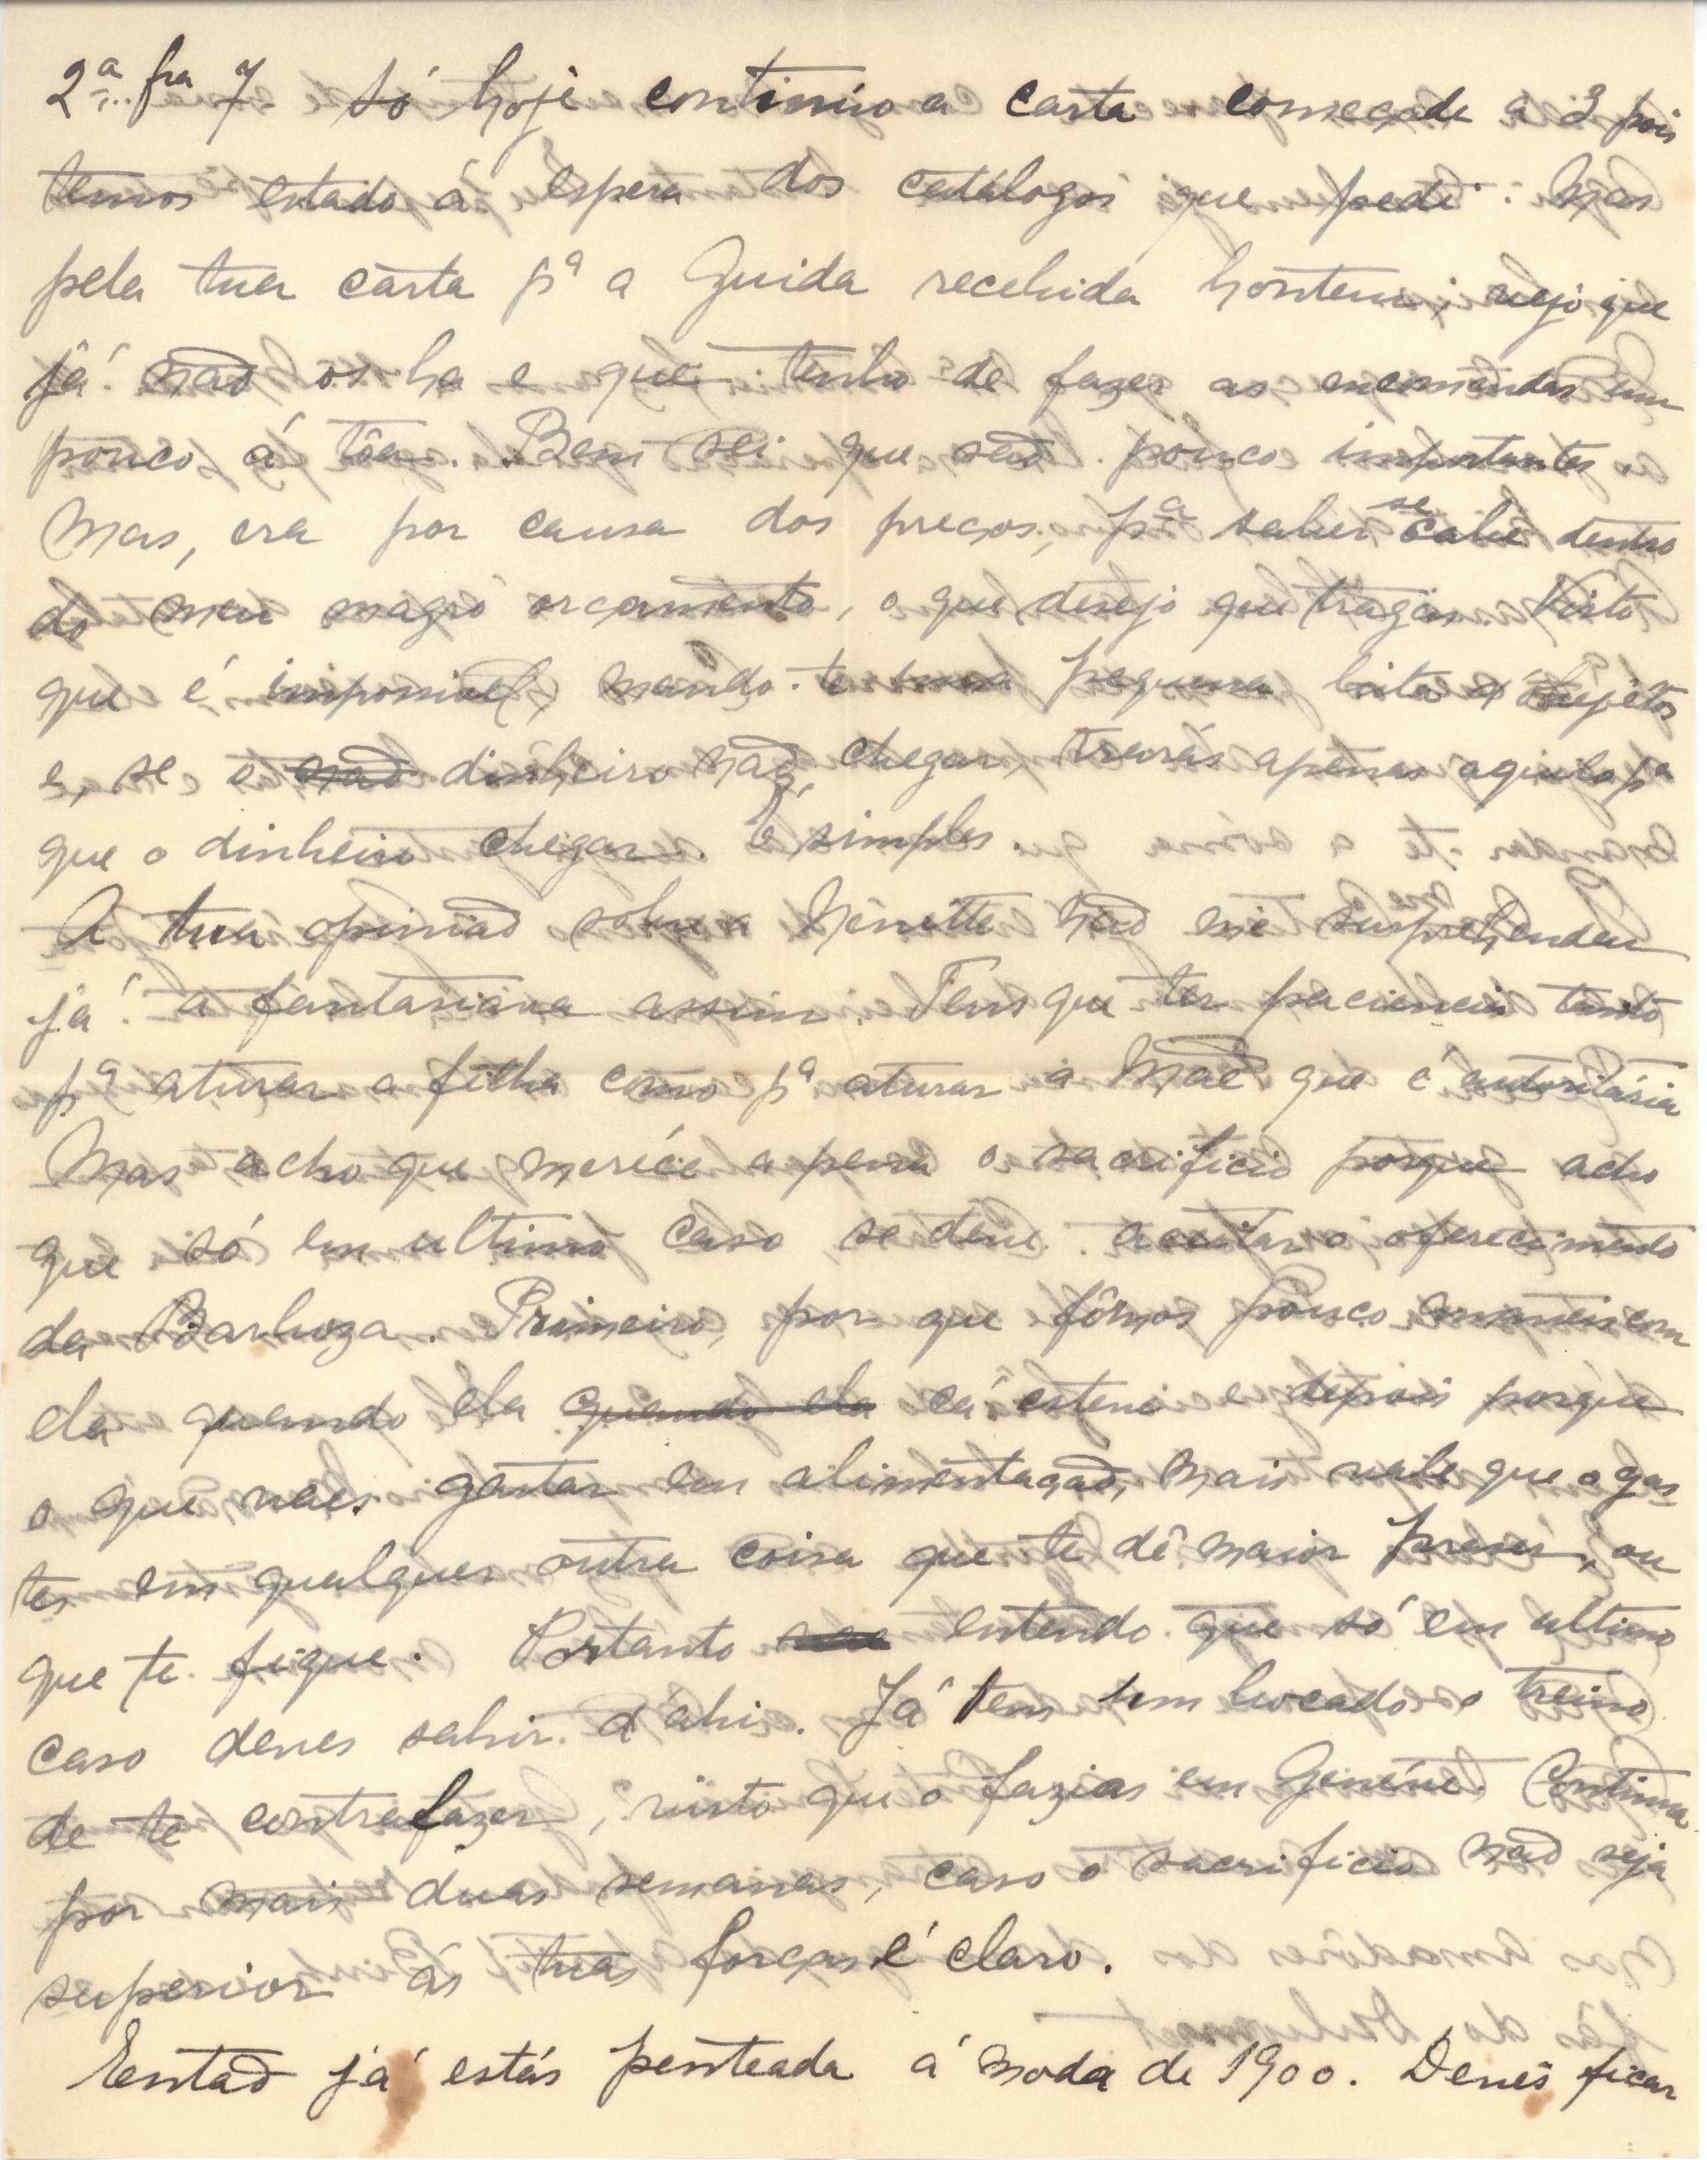 2ª fra 7. Só hoje continúo a carta começada a 3 pois
temos estado á espera dos catálogos que pedi. Mas
pela tua carta pª a Guida recebida hontem, vejo que
já não os ha e que tenho de fazer as encomendas um
pouco á tôa. Bem sei que são pouco importantes.
Mas, era por causa dos preços, pª saber se cabe dentro
do meu magro orçamento, o que desejo que tragas. Visto
que é impossivel, mando-te uma pequena lista d'objétos
e, se o não dinheiro não chegar, trarás apenas aquilo pª
que o dinheiro chegar. É simples.
A tua opinião sobre a Nénette não me surprehendeu
já a fantasiava assim. Tens que ter paciencia tanto
pª aturar a filha como pª aturar a Mãe que é autoritária
Mas acho que meréce a pena o sacrificio porque acho
que só em ultimo caso se deve aceitar o oferecimento
da Barboza. Primeiro, por que fômos pouco amaveis com
ela quando ela quando ela cá esteve e depois porque
o que vaes gastar em alimentação, mais vale que o gas
tes em qualquer outra coisa que te dê maior prazer, ou
que te fique. Portanto entendo que só em ultimo
caso deves sahir d'ahi. Já tens um bocado o treino
de te contrafazer, visto que o fazias em Genéve. Continua
por mais duas semanas, caso o sacrificio não seja
superior ás tuas forças é claro.
Entao já estás penteada á moda de 1900. Deves ficar